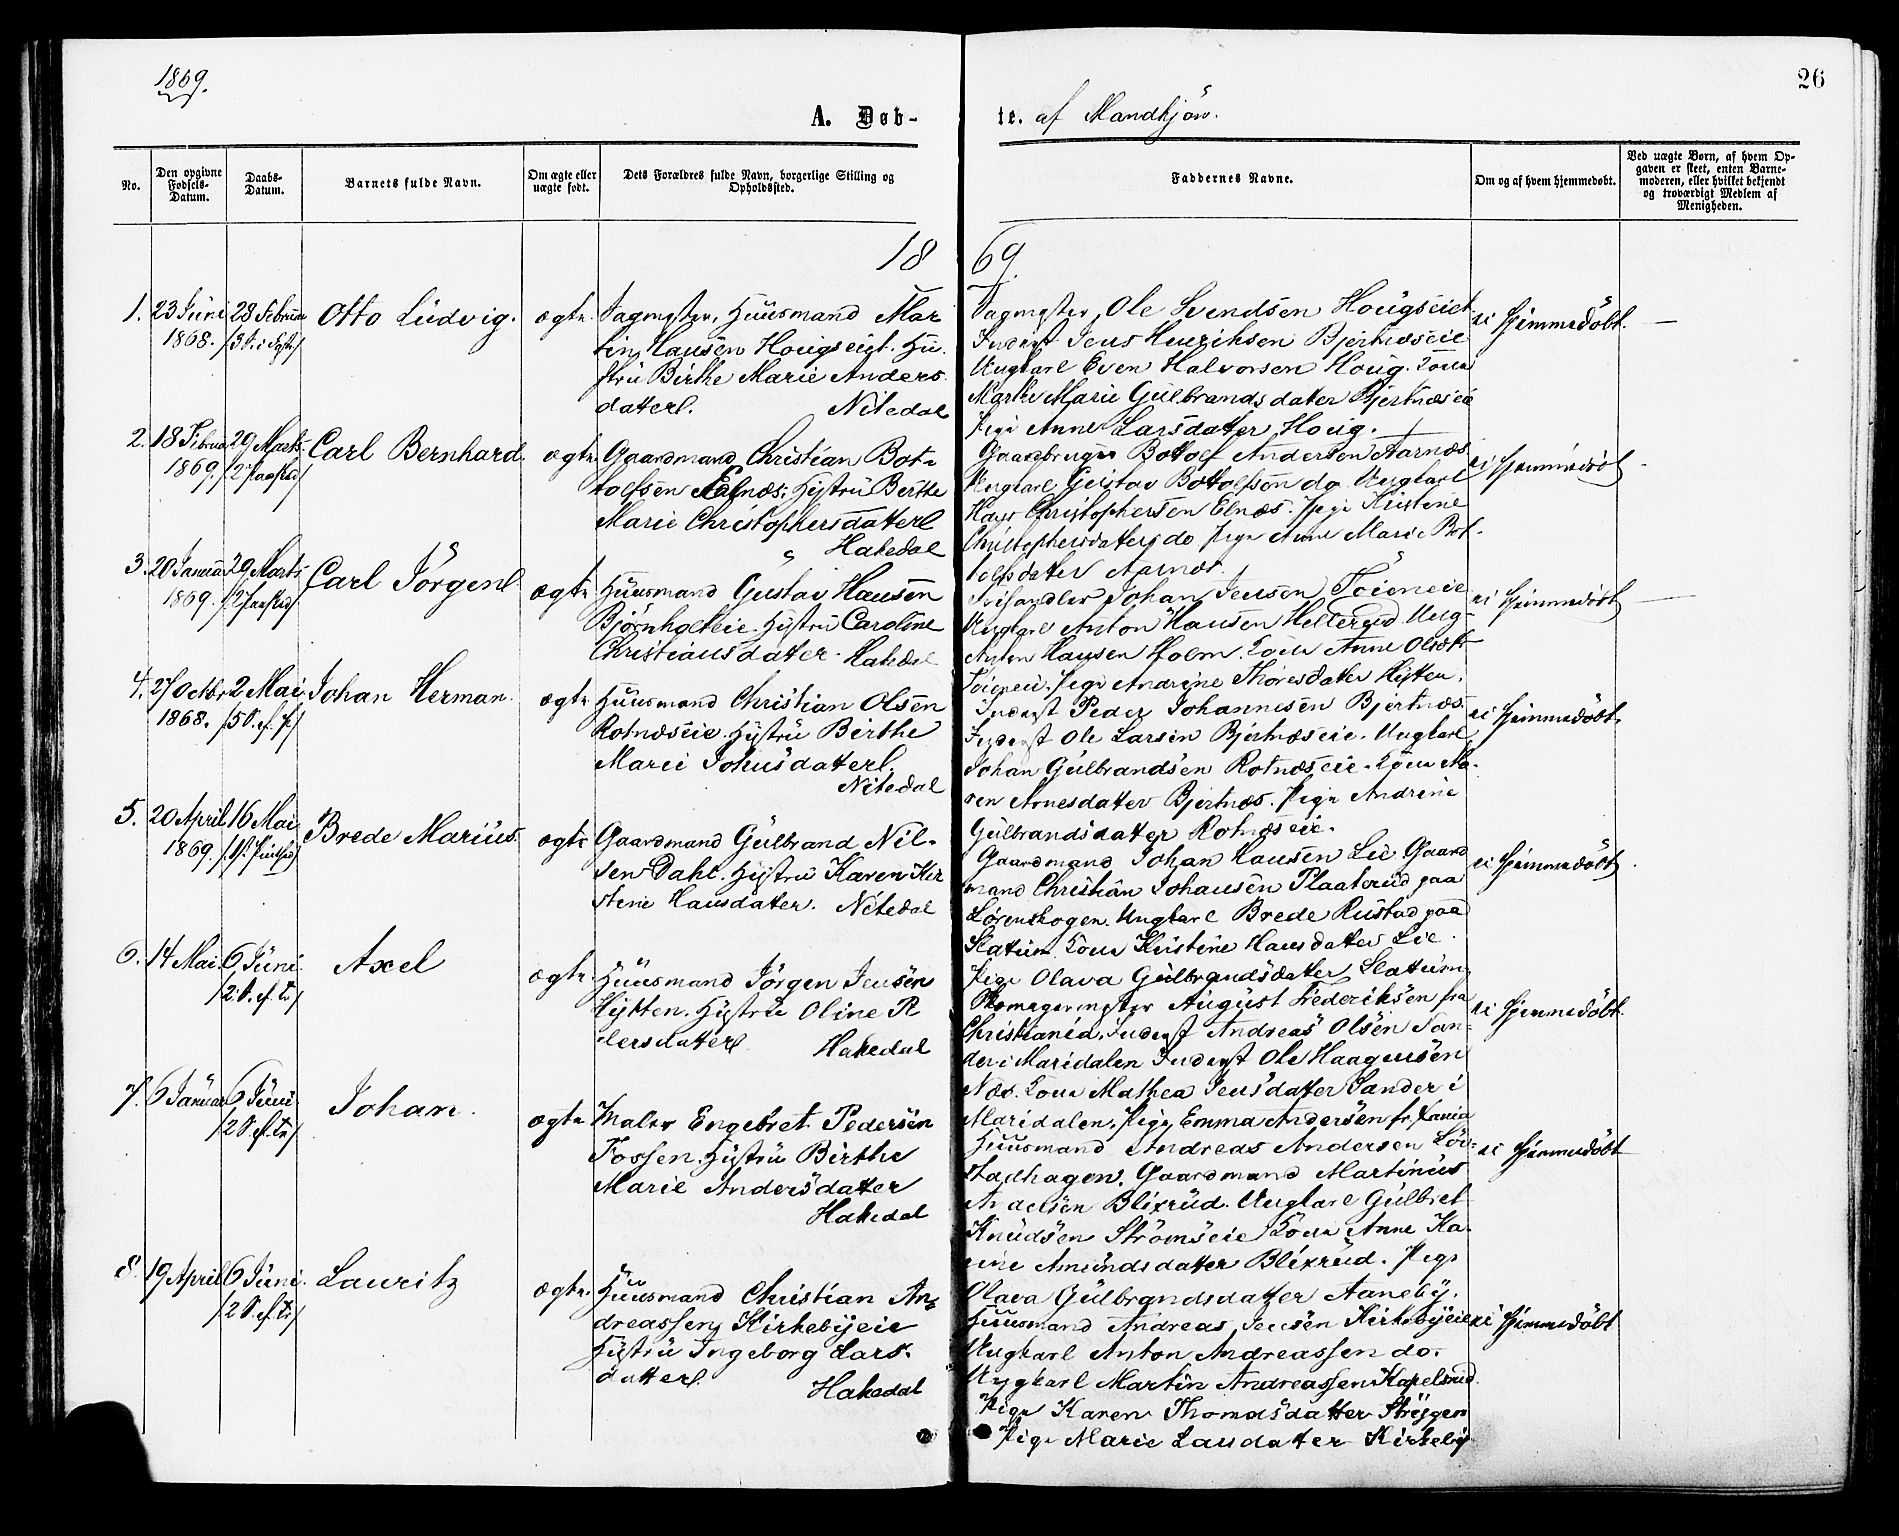 1869.
26
A. Døb-
te. af Mandkjön.
No.
Den opgivne Fødsels-Datum.
Daabs-Datum.
Barnets fulde Navn.
Om ægte eller uægte født.
Dets Forældres fulde Navn, borgerlige Stilling og Opholdssted.
Faddernes Navne.
Om og af hvem hjemmedøbt.
Ved uægte Børn, af hvem Op-
gaven er skeet, enten Barne-
moderen, eller hvilket bekjendt
og troværdigt Medlem af
Menigheden.
18 69.
1. 23 Juni 28 Februar Otto Ludvig. ægte. Huusmand Mar
1868.
tin Hansen Hougseiet. Hu.
stru Birthe Marie Anders
datter. Nitedal
Ole Svendsen Hougseiet ei hjemmedöbt.
Inderst Jens Henriksen Bjertnæseie
Ungkarl Even Halvorsen Houg. Kone
Marthe Marie Gulbrandsdatter Bjertnæseie
Pige Anne Larsdatter Houg.
2. 18 Februar 29 Marts Carl Bernhard ægte. Gaardmand Christian Bot-
1869. /2 Paaskd/
tolfsen Elnæs. Hustru Berthe
Marie Christophersdatter
Hakedal
Gaardbruger Bottolf Andersen Aarnæs ei hjemmedöbt
Ungkarl Gustav Bottolfsen do Ungkarl
Hans Christophersen Elnæs. Pige Kristine
Christophersdatter do Pige Anne Marie Bot-
tolfsdatter Aarnæs.
3. 20 Januar 29 Marts Carl Jörgen ægte Huusmand Gustav Hansen
1869. /2 Paaskd/
Björnholteie. Hustru Caroline
Christiansdatter. Hakedal
Johan Jensen ei hjemmedöbt
Ungkarl Anton Hansen Hellerud Ung-
Anton Hansen Holm. Kone Anne Olsdtr
Pige Andrine Thoresdatter Hytten.
4. 27 Octbr 2 Mai Johan Herman. ægte Huusmand Christian Olsen
1868. /5 S. ef. P./
Rotnæseie. Hustru Birthe
Marie Johnsdatter.
Nitedal
Inderst Peder Johannesen Bjertnæs. ei hjemmedöbt.
Inderst Ole Larsen Bjertnæseie. Ungkarl
Johan Gulbrandsen Rotnæseie. Kone Ma-
ren Arnesdatter Bjertnæs. Pige Andrine
Gulbrandsdatter Rotnæseie.
5. 20 April 16 Mai Brede Marius. ægte Gaardmand Gulbrand Nil-
1869.
sen Dahl. Hustru Karen Kir
stene Hansdatter. Nitedal
Gaardmand Johan Hansen Lie Gaard ei hjemmedöbt
mand Christian Johansen Plaaterud paa
Lörenskogen. Ungkarl Brede Rustad paa
Slatum Kone Kristine Hansdatter Lie.
Pige Olava Gulbrandsdatter Slatum
6. 14 Mai. 6 Juni Axel ægte. Huusmand Jörgen Jensen
/2 S. ef. tr/
Hytten. Hustru Oline P
dersdatter Hakedal
Skomagermester August Frederiksen fra ei hjemmedöbt.
Christiania, Inderst Andreas Olsen San-
der i Maridalen Inderst Ole Haagensen
Næs. Kone Mathea Jensdatter Sander i
Maridalen. Pige Emma Andersen fr. Xania
7. 6 Januar 6 Juni Johan. ægte Maler Engebret Pedersen
/2 S. ef. tr/
Fossen. Hustru Birthe
Marie Andersdatter
Hakedal
Huusmand Andreas Andersen Löv- ei hjemmedöbt
stadhagen. Gaardmand Martinius
Blixrud. Ungkarl Gulbret
Knudsen Strömseie Kone Anne Ka-
rine Amundsdatter Blixrud. Pige
Olava Gulbrandsdatter Aaneby.
8. 19 April 6 Juni Lauritz ægte. Huusmand Christian An-
/2 S. ef. tr/
dreassen Kirkebyeie
Hustru Ingeborg Lars-
datter. Hakedal
Huusmand Andreas Jensen Kirkebyeie ei hjemmedöbt
Ungkarl Anton Andreassen do.
Ungkarl Martin Andreassen Kapelsrud.
Pige Karen Thomasdatter Stryggen
Pige Marie Larsdatter Kirkeby